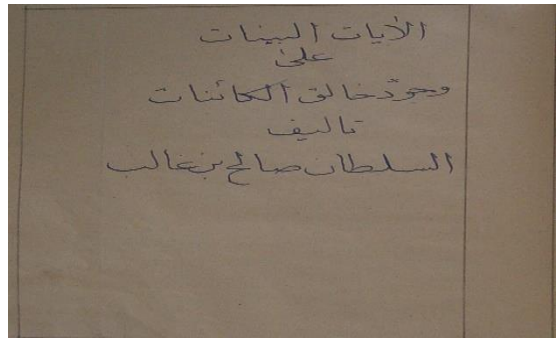 الآيات البينات
على
وجود خالق الكائنات
تاليف
السلطان صالح بن غالب